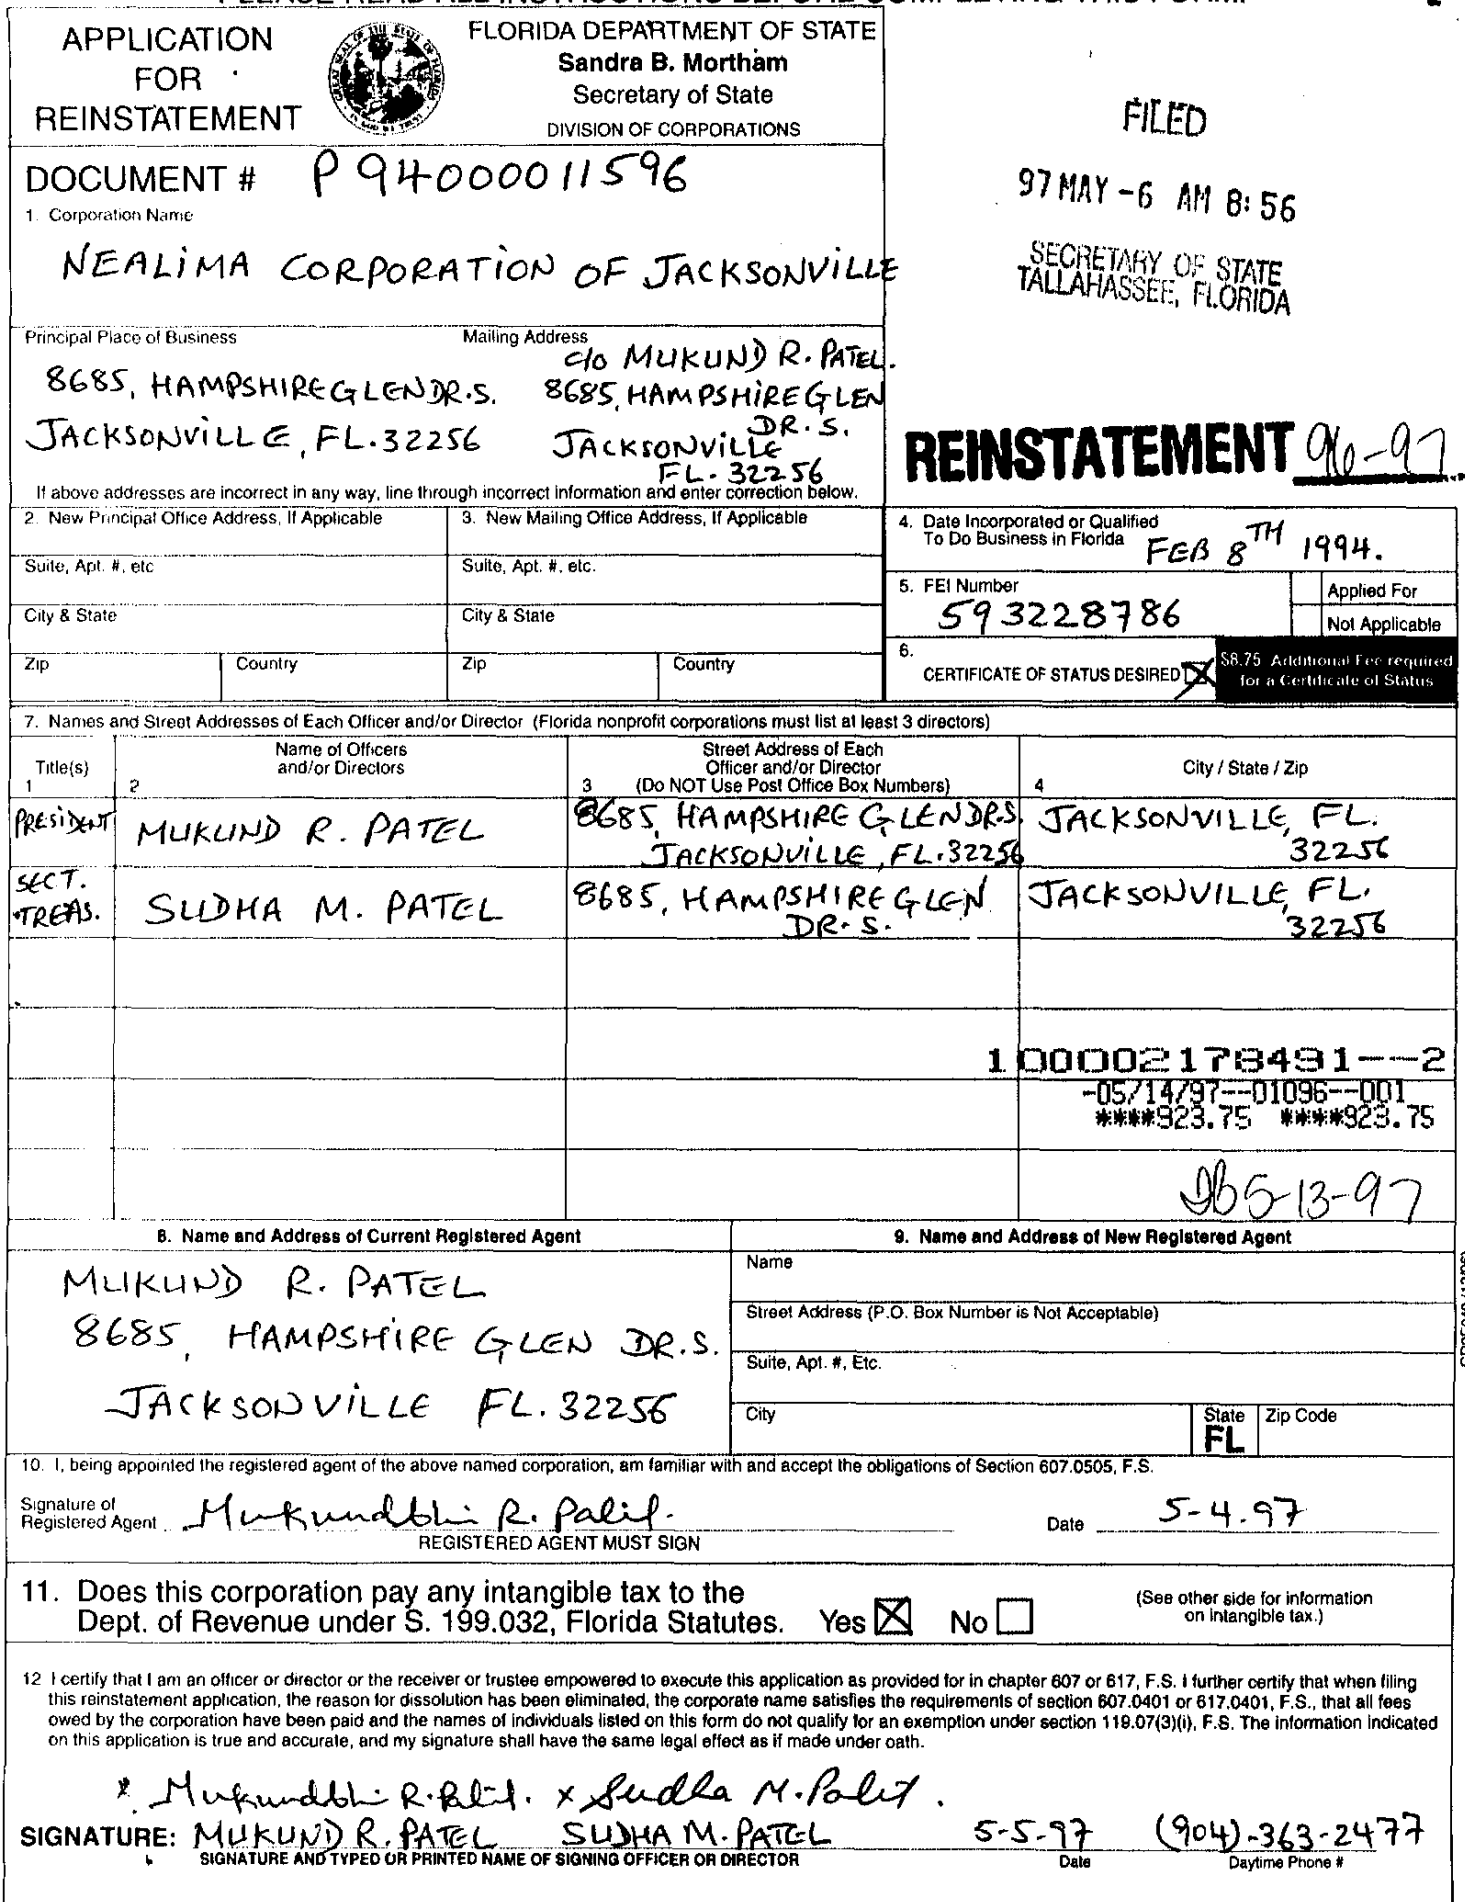 PLEASE READ ALL INSTRUCTIONS BEFORE COMPLETING THIS FORM.
APPLICATION
FOR
REINSTATEMENT
FLORIDA DEPARTMENT OF STATE
Sandra B. Mortham
Secretary of State
DIVISION OF CORPORATIONS
FILED
97 MAY -6 AM 8:56
SECRETARY OF STATE
TALLAHASSEE, FLORIDA
DOCUMENT # P94000011596
1. Corporation Name
NEALIMA CORPORATION OF JACKSONVILLE
Principal Place of Business
8685, HAMPSHIRE GLEN DR.S.
JACKSONVILLE, FL.32256
Mailing Address
c/o MUKUND R. PATEL.
8685, HAMPSHIRE GLEN
DR. S.
JACKSONVILLE
FL. 32256
REINSTATEMENT 96-97
If above addresses are incorrect in any way, line through incorrect information and enter correction below.
2. New Principal Office Address, If Applicable
Suite, Apt. #, etc
City & State
Zip Country
3. New Mailing Office Address, If Applicable
Suite, Apt. #, etc.
City & State
Zip Country
4. Date Incorporated or Qualified
To Do Business in Florida FEB 8TH 1994.
5. FEI Number
593228786
Applied For
Not Applicable
6.
CERTIFICATE OF STATUS DESIRED
$8.75 Additional Fee required
for a Certificate of Status
7. Names and Street Addresses of Each Officer and/or Director (Florida nonprofit corporations must list at least 3 directors)
Title(s)
1
Name of Officers
and/or Directors
2
Street Address of Each
Officer and/or Director
3 (Do NOT Use Post Office Box Numbers)
City / State / Zip
4
PRESIDENT MUKUND R. PATEL 8685, HAMPSHIRE GLEN DR.S. JACKSONVILLE, FL.
JACKSONVILLE, FL.32256 32256
SECT.
TREAS. SUDHA M. PATEL 8685, HAMPSHIRE GLEN JACKSONVILLE, FL.
DR. S. 32256
100002178491--2
-05/14/97--01096--001
****923.75 ****923.75
5-13-97
8. Name and Address of Current Registered Agent
MUKUND R. PATEL
8685, HAMPSHIRE GLEN DR.S.
JACKSONVILLE FL. 32256
9. Name and Address of New Registered Agent
Name
Street Address (P.O. Box Number is Not Acceptable)
Suite, Apt. #, Etc.
City State FL Zip Code
10. I, being appointed the registered agent of the above named corporation, am familiar with and accept the obligations of Section 607.0505, F.S.
Signature of
Registered Agent Date 5-4.97
REGISTERED AGENT MUST SIGN
11. Does this corporation pay any intangible tax to the
Dept. of Revenue under S. 199.032, Florida Statutes. Yes No
(See other side for information
on intangible tax.)
12 I certify that I am an officer or director or the receiver or trustee empowered to execute this application as provided for in chapter 607 or 617, F.S. I further certify that when filing
this reinstatement application, the reason for dissolution has been eliminated, the corporate name satisfies the requirements of section 607.0401 or 617.0401, F.S., that all fees
owed by the corporation have been paid and the names of individuals listed on this form do not qualify for an exemption under section 119.07(3)(i), F.S. The information indicated
on this application is true and accurate, and my signature shall have the same legal effect as if made under oath.
SIGNATURE: MUKUND R. PATEL SUDHA M. PATEL 5-5-97 (904)-363-2477
SIGNATURE AND TYPED OR PRINTED NAME OF SIGNING OFFICER OR DIRECTOR Date Daytime Phone #